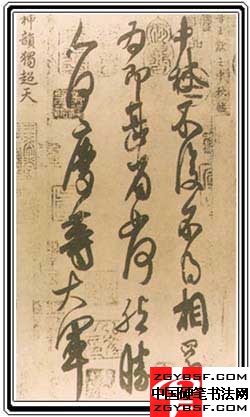 晉王獻之中秋帖
中秋不復不得相還
為即甚省如何然勝
人何慶等大軍
神韻獨超天
ZGYBSF.COM
中国硬笔书法网
ZGYBSF.COM